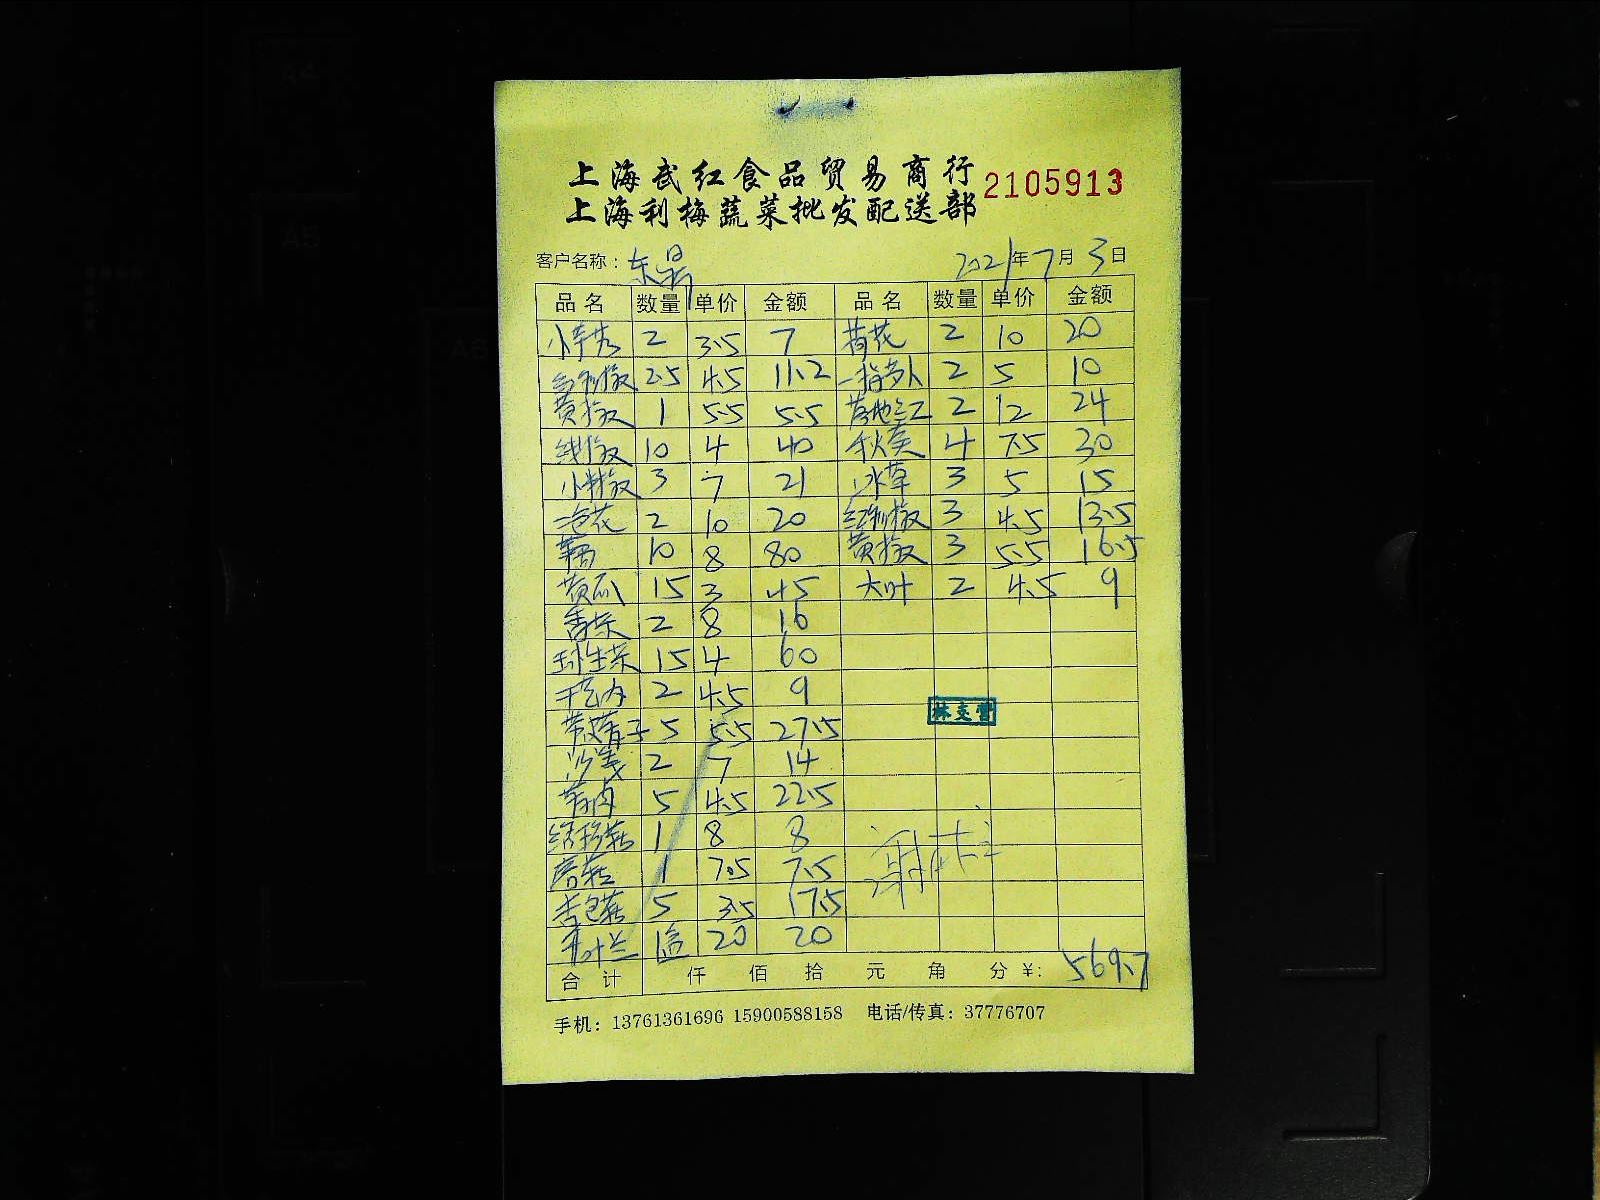 上海武红食品贸易商行
上海利梅蔬菜批发配送部
2105913
客户名称：东 2021年7月3日
品名 数量 单价 金额 品名 数量 单价 金额
2 3.5 7 荷花 2 10 20
2.5 4.5 11.2 2 5 10
黄椒 1 5.5 5.5 落地红 2 12 24
线椒 10 4 40 秋葵 4 7.5 30
小米椒 3 7 21 冰草 3 5 15
2 10 20 红利椒 3 4.5 13.5
10 8 80 黄椒 3 5.5 16.5
黄瓜 15 3 45 大叶 2 4.5 9
香菜 2 8 16
球生菜 15 4 60
2 4.5 9
5 5.5 27.5
沙姜 2 7 14
5 4.5 22.5
1 8 8
1 7.5 7.5
5 3.5 17.5
1 20 20
合计 仟 佰 拾 元 角 分 ¥: 569.7
手机：13761361696 15900588158 电话/传真：37776707